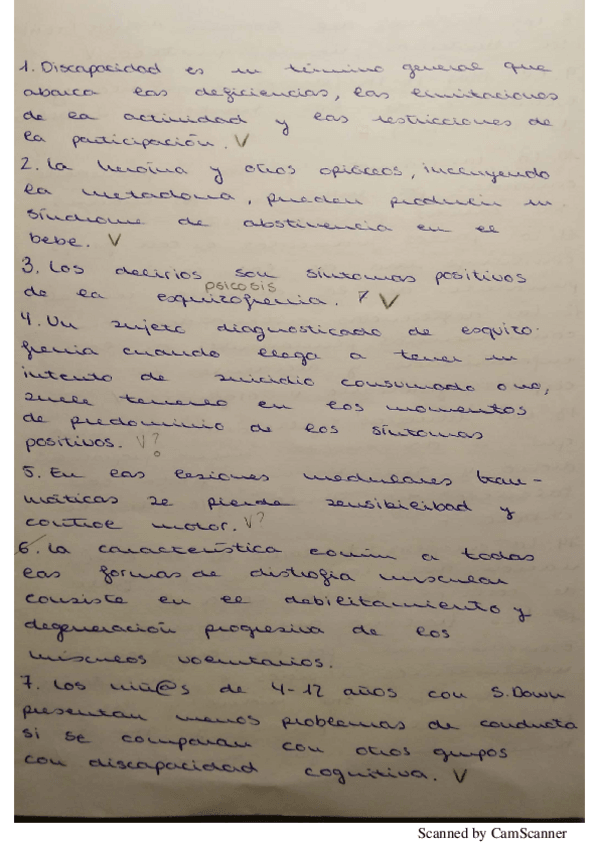 1. Discapacidad es un término general que
abarca las deficiencias, las limitaciones
de la actividad y las restricciones de
la participación. V
2. La heroína y otros opiáceos, incluyendo
la metadona, pueden producir un
síndrome de abstinencia en el
bebe. V
3. Los delirios son síntomas positivos
psicosis
de la esquizofrenia. ? V
4. Un sujeto diagnosticado de esquizo-
frenia cuando llega a tener un
intento de suicidio consumado o no,
suele tenerlo en los momentos
de predominio de los síntomas
positivos. V?
5. En las lesiones medulares trau-
máticas se pierde sensibilibad y
control motor. V?
6. La característica común a todas
las formas de distrofia muscular
consiste en el debilitamiento y
degeneración progresiva de los
músculos voluntarios.
7. Los niñ@s de 4-12 años con S. Down
presentan menos problemas de conducta
si se comparan con otros grupos
con discapacidad cognitiva. V
Scanned by CamScanner